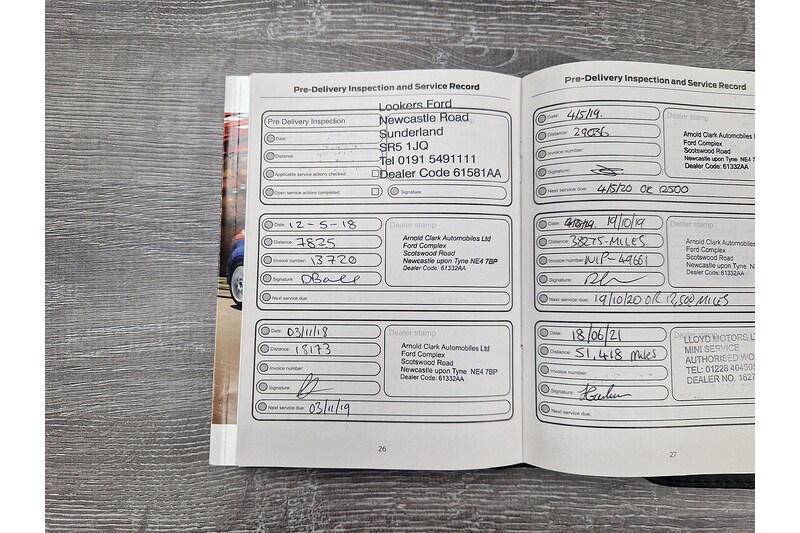 Pre-Delivery Inspection and Service Record
Pre Delivery Inspection
Date:
Distance:
Applicable service actions checked
Open service actions completed:
Signature:
Lookers Ford
Newcastle Road
Sunderland
SR5 1JQ
Tel 0191 5491111
Dealer Code 61581AA
Date: 12-5-18
Distance: 7825
Invoice number: 13720
Signature:
Next service due:
Dealer stamp
Arnold Clark Automobiles Ltd
Ford Complex
Scotswood Road
Newcastle upon Tyne NE4 7BP
Dealer Code: 61332AA
Date: 03/11/18
Distance: 18173
Invoice number:
Signature:
Next service due: 03/11/19
Dealer stamp
Arnold Clark Automobiles Ltd
Ford Complex
Scotswood Road
Newcastle upon Tyne NE4 7BP
Dealer Code: 61332AA
26
Pre-Delivery Inspection and Service Record
Date: 4/5/19.
Distance: 29036
Invoice number:
Signature:
Next service due: 4/5/20 OR 12500
Dealer stamp
Arnold Clark Automobiles
Ford Complex
Scotswood Road
Newcastle upon Tyne
Dealer Code: 61332AA
Date: 19/10/19
Distance: 38275-MILES
Invoice number: WIP-49661
Signature:
Next service due: 19/10/20 OR 12,500 MILES
Dealer stamp
Arnold Clark Automobiles
Ford Complex
Scotswood Road
Newcastle upon Tyne
Dealer Code: 61332AA
Date: 18/06/21
Distance: 51,418 miles
Invoice number:
Signature:
Next service due:
LLOYD MOTORS L
MINI SERVICE
AUTHORISED WO
TEL: 01228 40450
DEALER NO. 1627
27